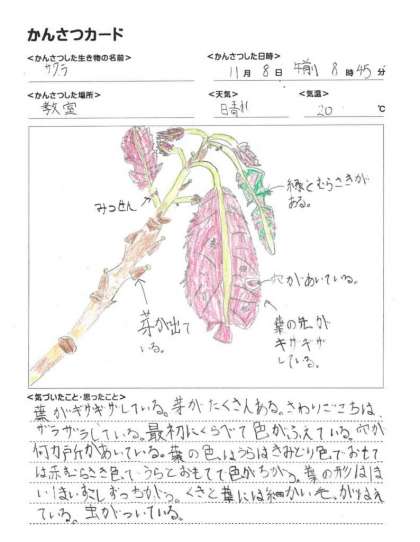 かんさつカード
<かんさつした生き物の名前>
サクラ
<かんさつした日時>
11月8日 午前8時45分
<かんさつした場所>
教室
<天気>
日青れ
<気温>
20℃
みつせん
緑とむらさきが
ある。
穴があいている。
芽が出て
いる。
葉の先が
ギザギザ
している。
<気づいたこと・思ったこと>
葉がギザギザしている。芽がたくさんある。さわりごこちは、
ザラザラしている。最初にくらべて色がふえている。穴が
何カ所かあいている。葉の色はうらはきみどり色でおもて
は赤むらさき色で うらとおもてで色がちがう。葉の形はほ
いほい すこしずつちがう。くきと葉には細かい毛がはえ
ている。虫がついている。